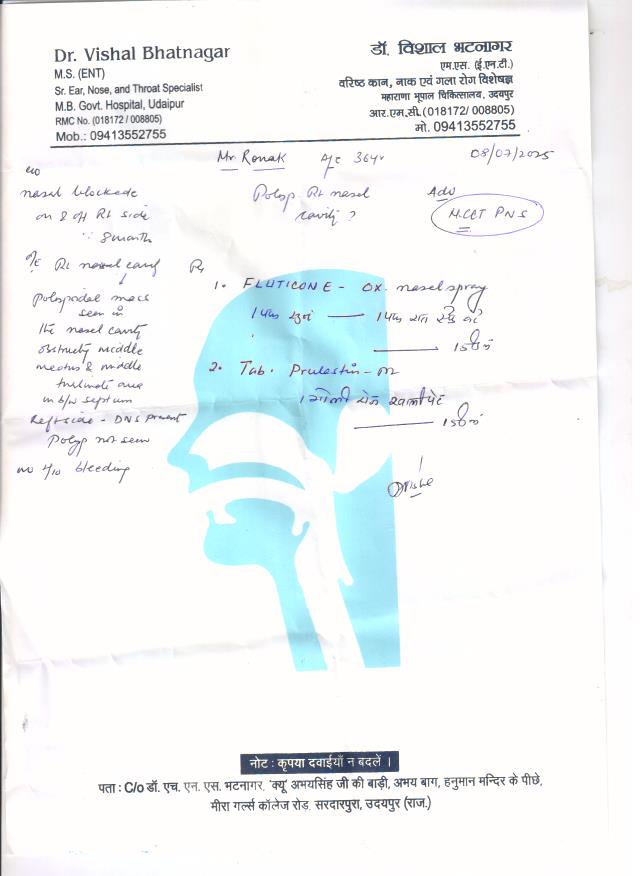 Dr. Vishal Bhatnagar
M.S. (ENT)
Sr. Ear, Nose, and Throat Specialist
M.B. Govt. Hospital, Udaipur
RMC No. (018172 / 008805)
Mob.: 09413552755
डॉ. विशाल भटनागर
एम.एस. (ई.एन.टी.)
वरिष्ठ कान, नाक एवं गला रोग विशेषज्ञ
महाराणा भूपाल चिकित्सालय, उदयपुर
आर.एम.सी. (018172/ 008805)
मो. 09413552755
Mr. Ronak
08/07/2025
c/o
nasal blockade
on & off Rt side
∵ 8 month
O/E Rt nasal cavity
↓
Polypoidal mass
seen in
the nasal cavity
obstructing middle
meatus & middle
turbinate area
in b/w septum
Left side - DNS present
Polyp not seen
no h/o bleeding
Polyp Rt nasal
cavity ?
Adv
NCCT PNS
Rx
1. FLUTICONE - nasal spray
1 पफ सुबह — 1 पफ रात
15 दिन
2. Tab.
1 गोली रोज खाली पेट
15 दिन
नोट : कृपया दवाईयाँ न बदलें ।
पता : C/o डॉ. एच. एन. एस. भटनागर, 'क्यू' अभयसिंह जी की बाड़ी, अभय बाग, हनुमान मन्दिर के पीछे,
मीरा गर्ल्स कॉलेज रोड़, सरदारपुरा, उदयपुर (राज.)